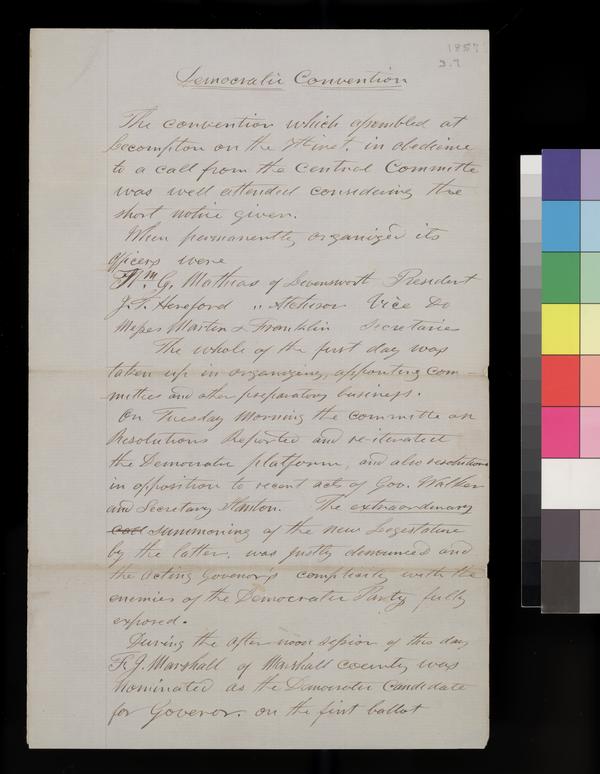 1857
Democratic Convention
The convention which assembled at
Lecompton on the 7th inst. in obedience
to a call from the Central Committe
was well attended considering the
short notice given.
When permanently organized its
officers were
Wm. G. Mathias of Levensworth President
J. T. Hereford " Atchison Vice Do
Messes Martin & Franklin Secretaries
The whole of the first day was
taken up in organizing, appointing com-
mittees and other preparatory business.
On Tuesday Morning the Committe on
Resolutions Reported and re-iterated
the Democratic platform, and also resolutions
in opposition to recent acts of Gov. Walker
and Secretary Stanton. The extraordinary
call summoning of the new Legislature
by the latter, was justly denounced and
the Acting Govenor's complicity with the
enemies of the Democratic Party fully
exposed.
During the after noon session of this day
F. J. Marshall of Marshall County was
Nominated as the Democratic Candidate
for Govenor. on the first ballot